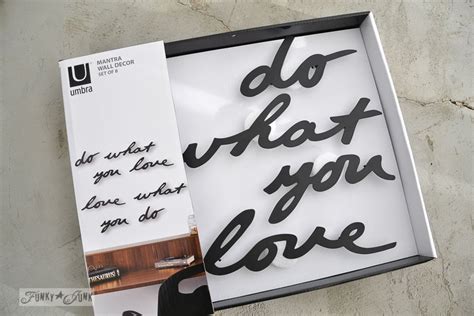 umbra
MANTRA
WALL DECOR
SET OF 8
do what
you love
love what
you do
do
what
you
love
FUNKY ★ JUNK